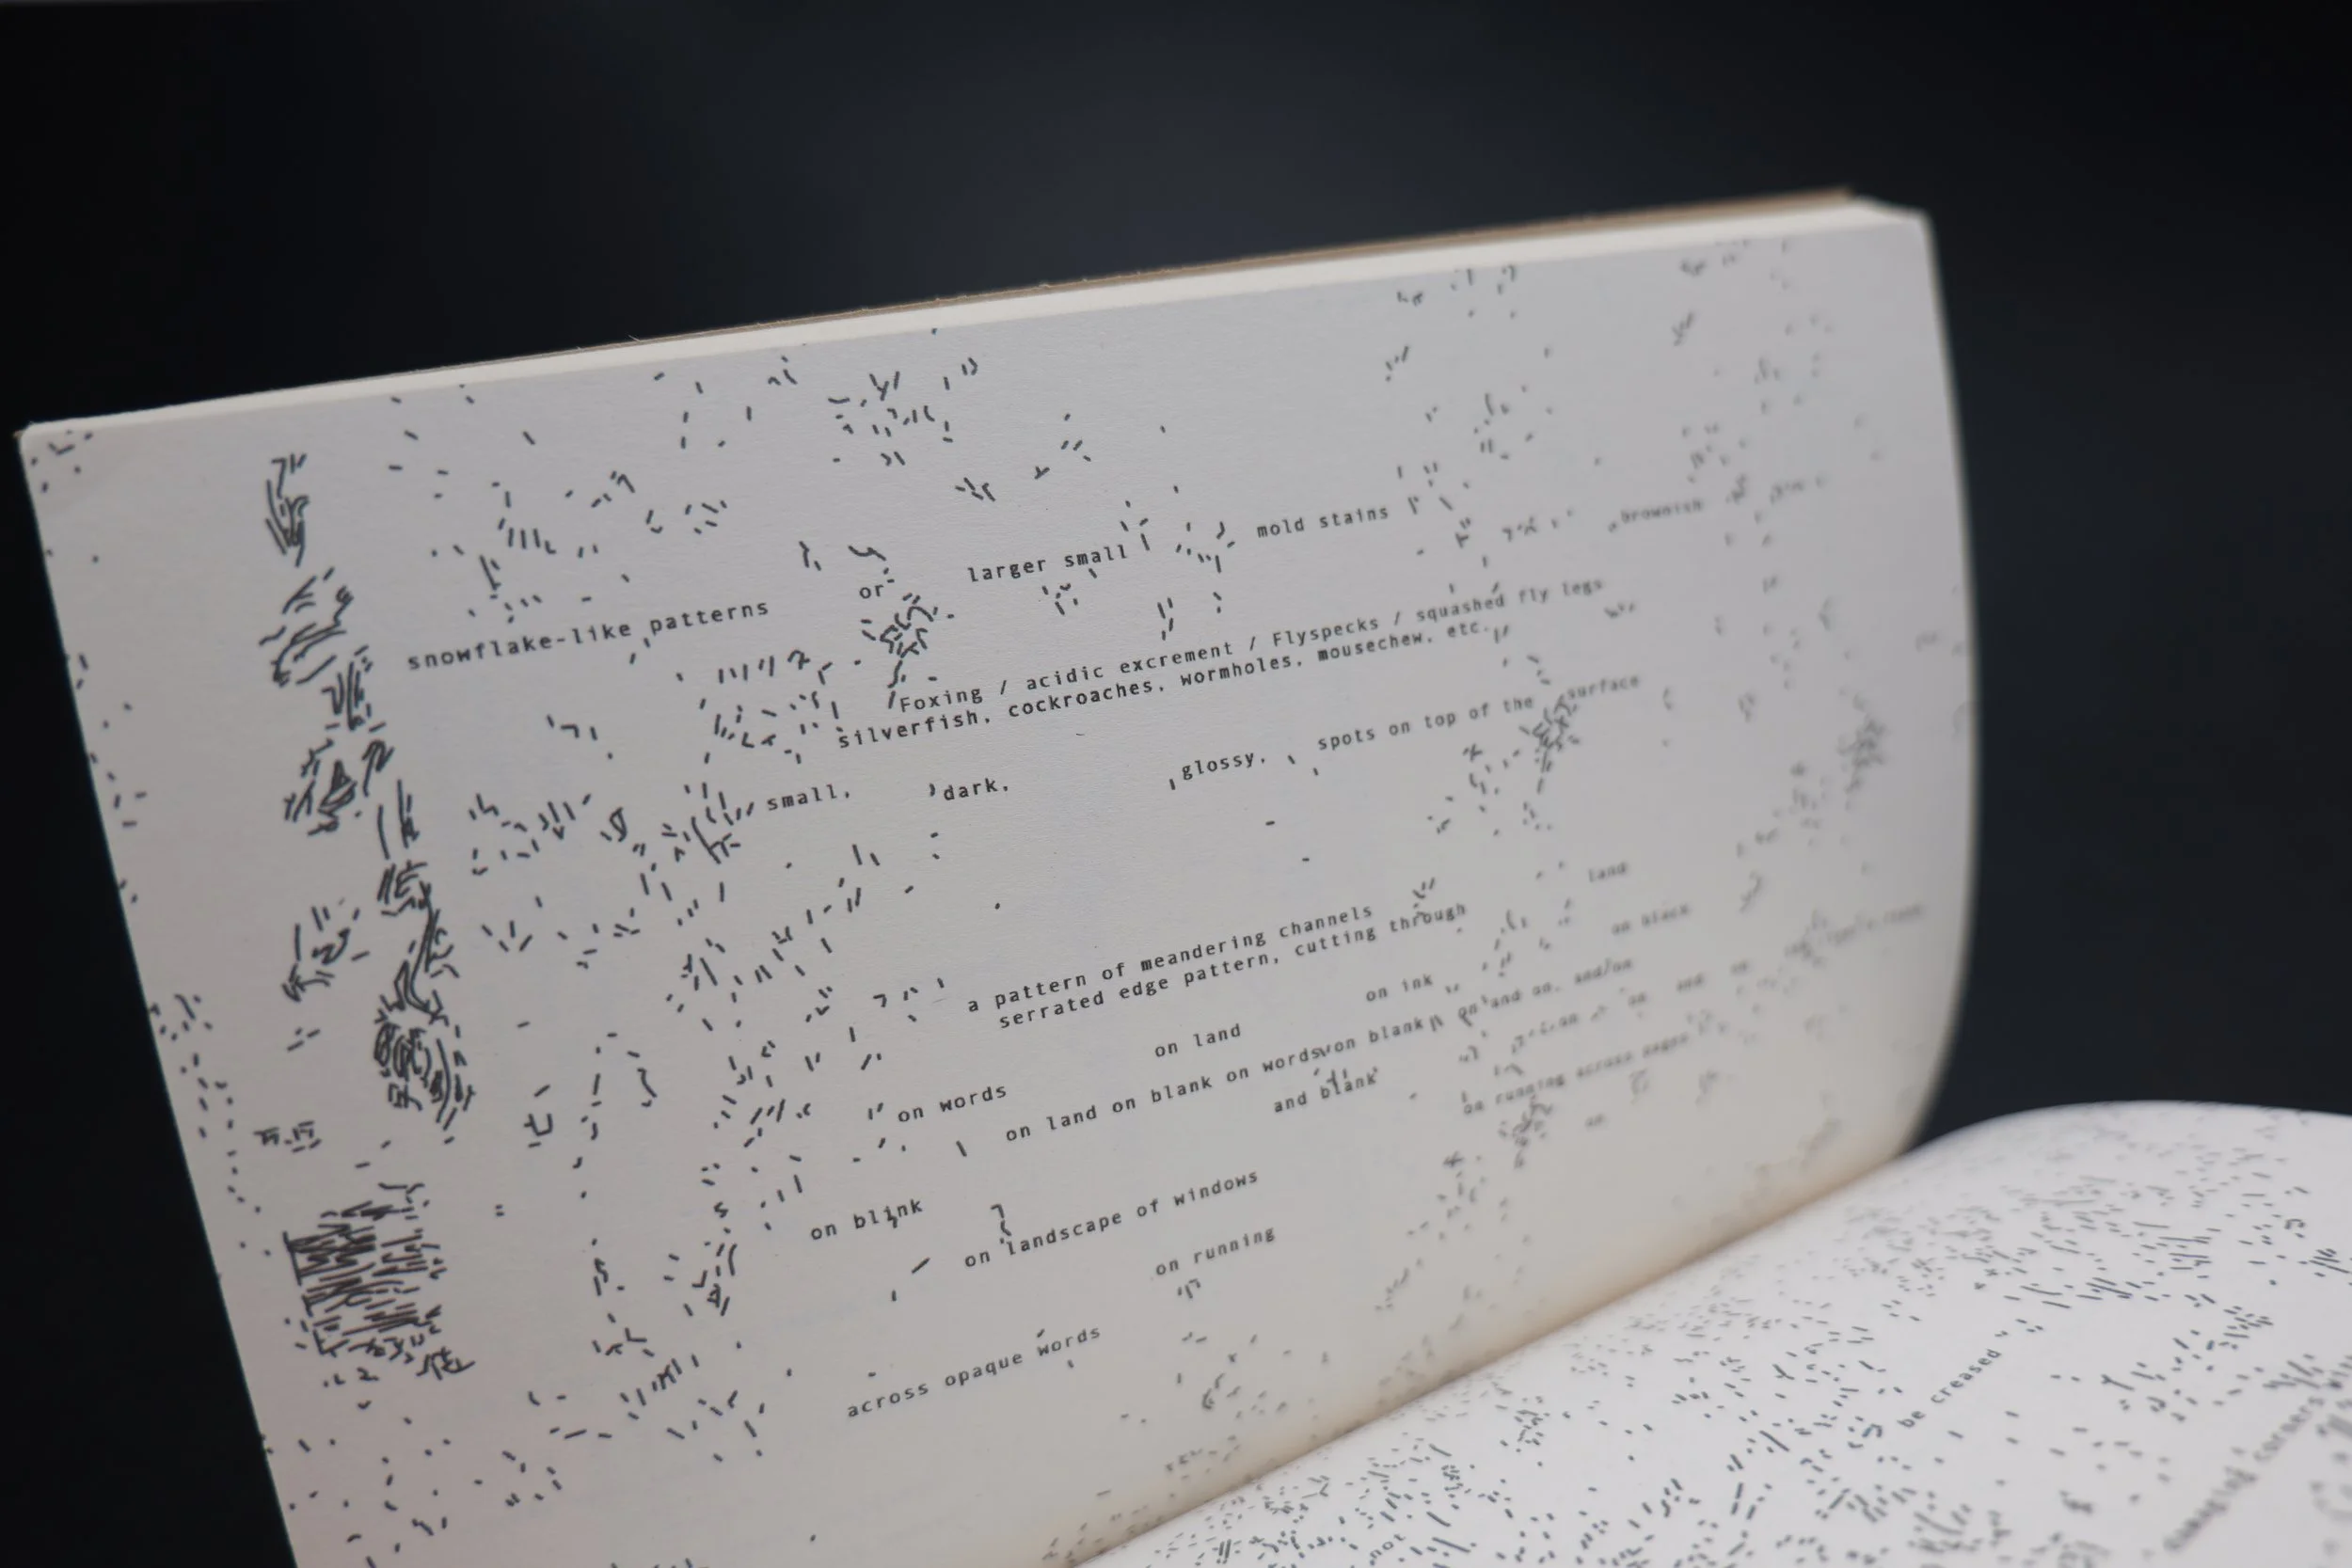 snowflake-like patterns or larger small mold stains brownish
Foxing / acidic excrement / Flyspecks / squashed fly legs
silverfish, cockroaches, wormholes, mousechew, etc.
small, dark, glossy, spots on top of the surface
a pattern of meandering channels land
serrated edge pattern, cutting through on black
on words on land on ink
on land on blank on words on blank on and on, and/on
on blink and blank on and
on landscape of windows on running across pages
across opaque words on running
be creased
not
corners